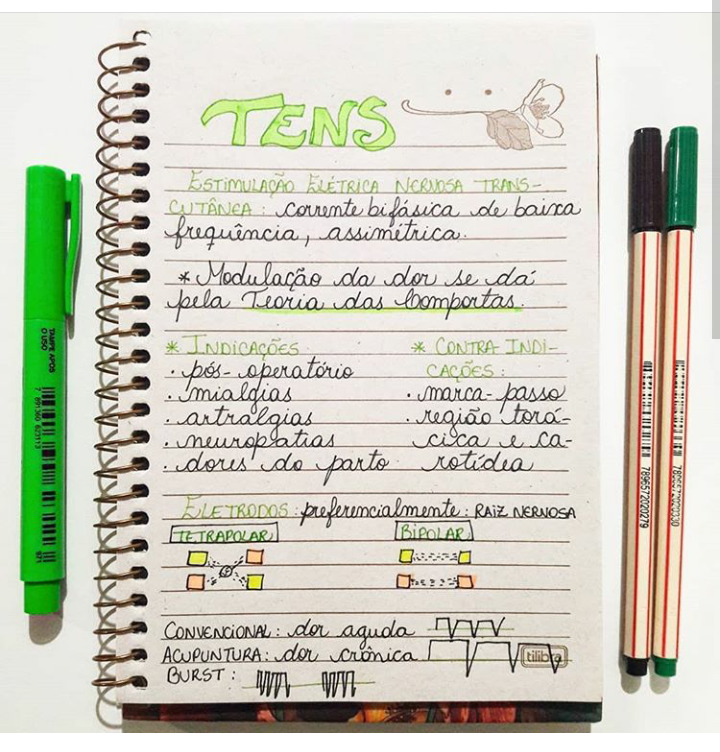 TENS
ESTIMULAÇÃO ELÉTRICA NERVOSA TRANS-
CUTÂNEA: corrente bifásica de baixa
frequência, assimétrica.
* Modulação da dor se dá
pela Teoria das Comportas.
* INDICAÇÕES
· pós-operatório
· mialgias
· artralgias
· neuropatias
· dores do parto
* CONTRA-INDI-
CAÇÕES:
· marca-passo
· região torá-
cica e ca-
rotídea
ELETRODOS: preferencialmente: RAIZ NERVOSA
TETRAPOLAR
BIPOLAR
CONVENCIONAL: dor aguda
ACUPUNTURA: dor crônica
BURST:
TAMPE APÓS
O USO
7 891360 623113
7896572020279
7896572020330